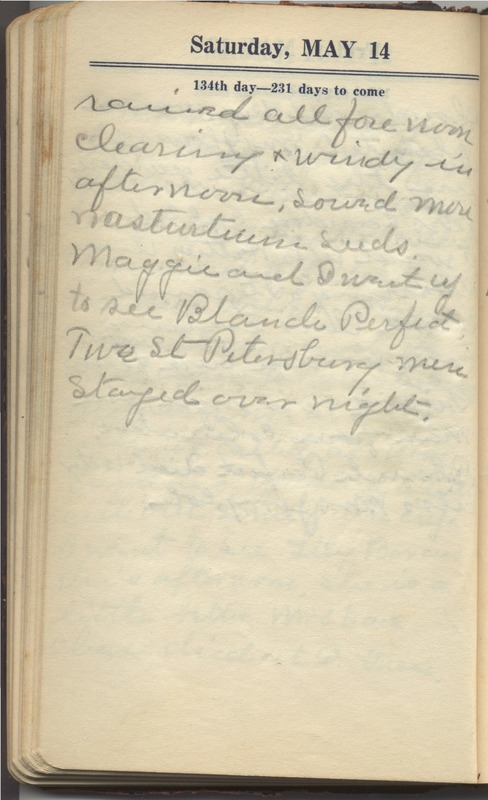 Saturday, MAY 14
134th day—231 days to come
rained all fore noon
clearing & windy in
afternoon, sowed more
nasturtium seeds.
Maggie and I went up
to see Blande Perfect.
Two St Petersburg men
stayed over night.